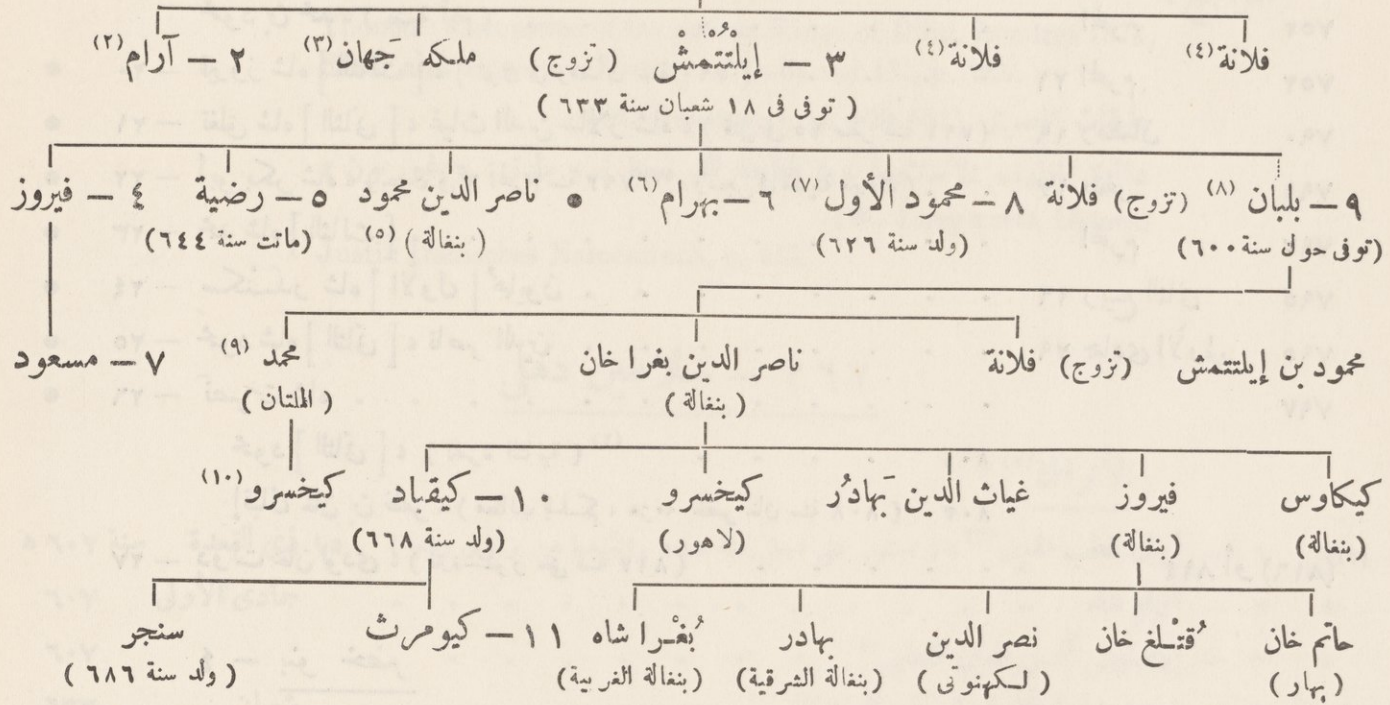 فلانة (٤) فلانة (٤) ٣ — إِيلْتُتْمُشْ ( تزوج ) ملكه جَهان (٣) ٢ — آرام (٢)
( توفى فى ١٨ شعبان سنة ٦٣٣ )
٩ — بلبان (٨) (تزوج) فلانة ٨ — محمود الأول (٧) ٦ — بهرام (٦) • ناصر الدين محمود ٥ — رضية ٤ — فيروز
(توفى حول سنة ٦٠٠) (ولد سنة ٦٢٦) ( بنغالة ) (٥) (ماتت سنة ٦٤٤)
محمود بن إيلتتمش (تزوج) فلانة ناصر الدين بغرا خان محمد (٩) ٧ — مسعود
( بنغالة ) ( الملتان )
كيكاوس فيروز غياث الدين بَهادُر كيخسرو ١٠ — كيقباد كيخسرو (١٠)
(بنغالة) (بنغالة) (لاهور) (ولد سنة ٦٦٨)
حاتم خان قُتْلغ خان نصر الدين بهادر بُغْرا شاه ١١ — كيومرث سنجر
( بهار ) ( لكهنوتى ) (بنغالة الشرقية) (بنغالة الغربية) ( ولد سنة ٦٨٦ )